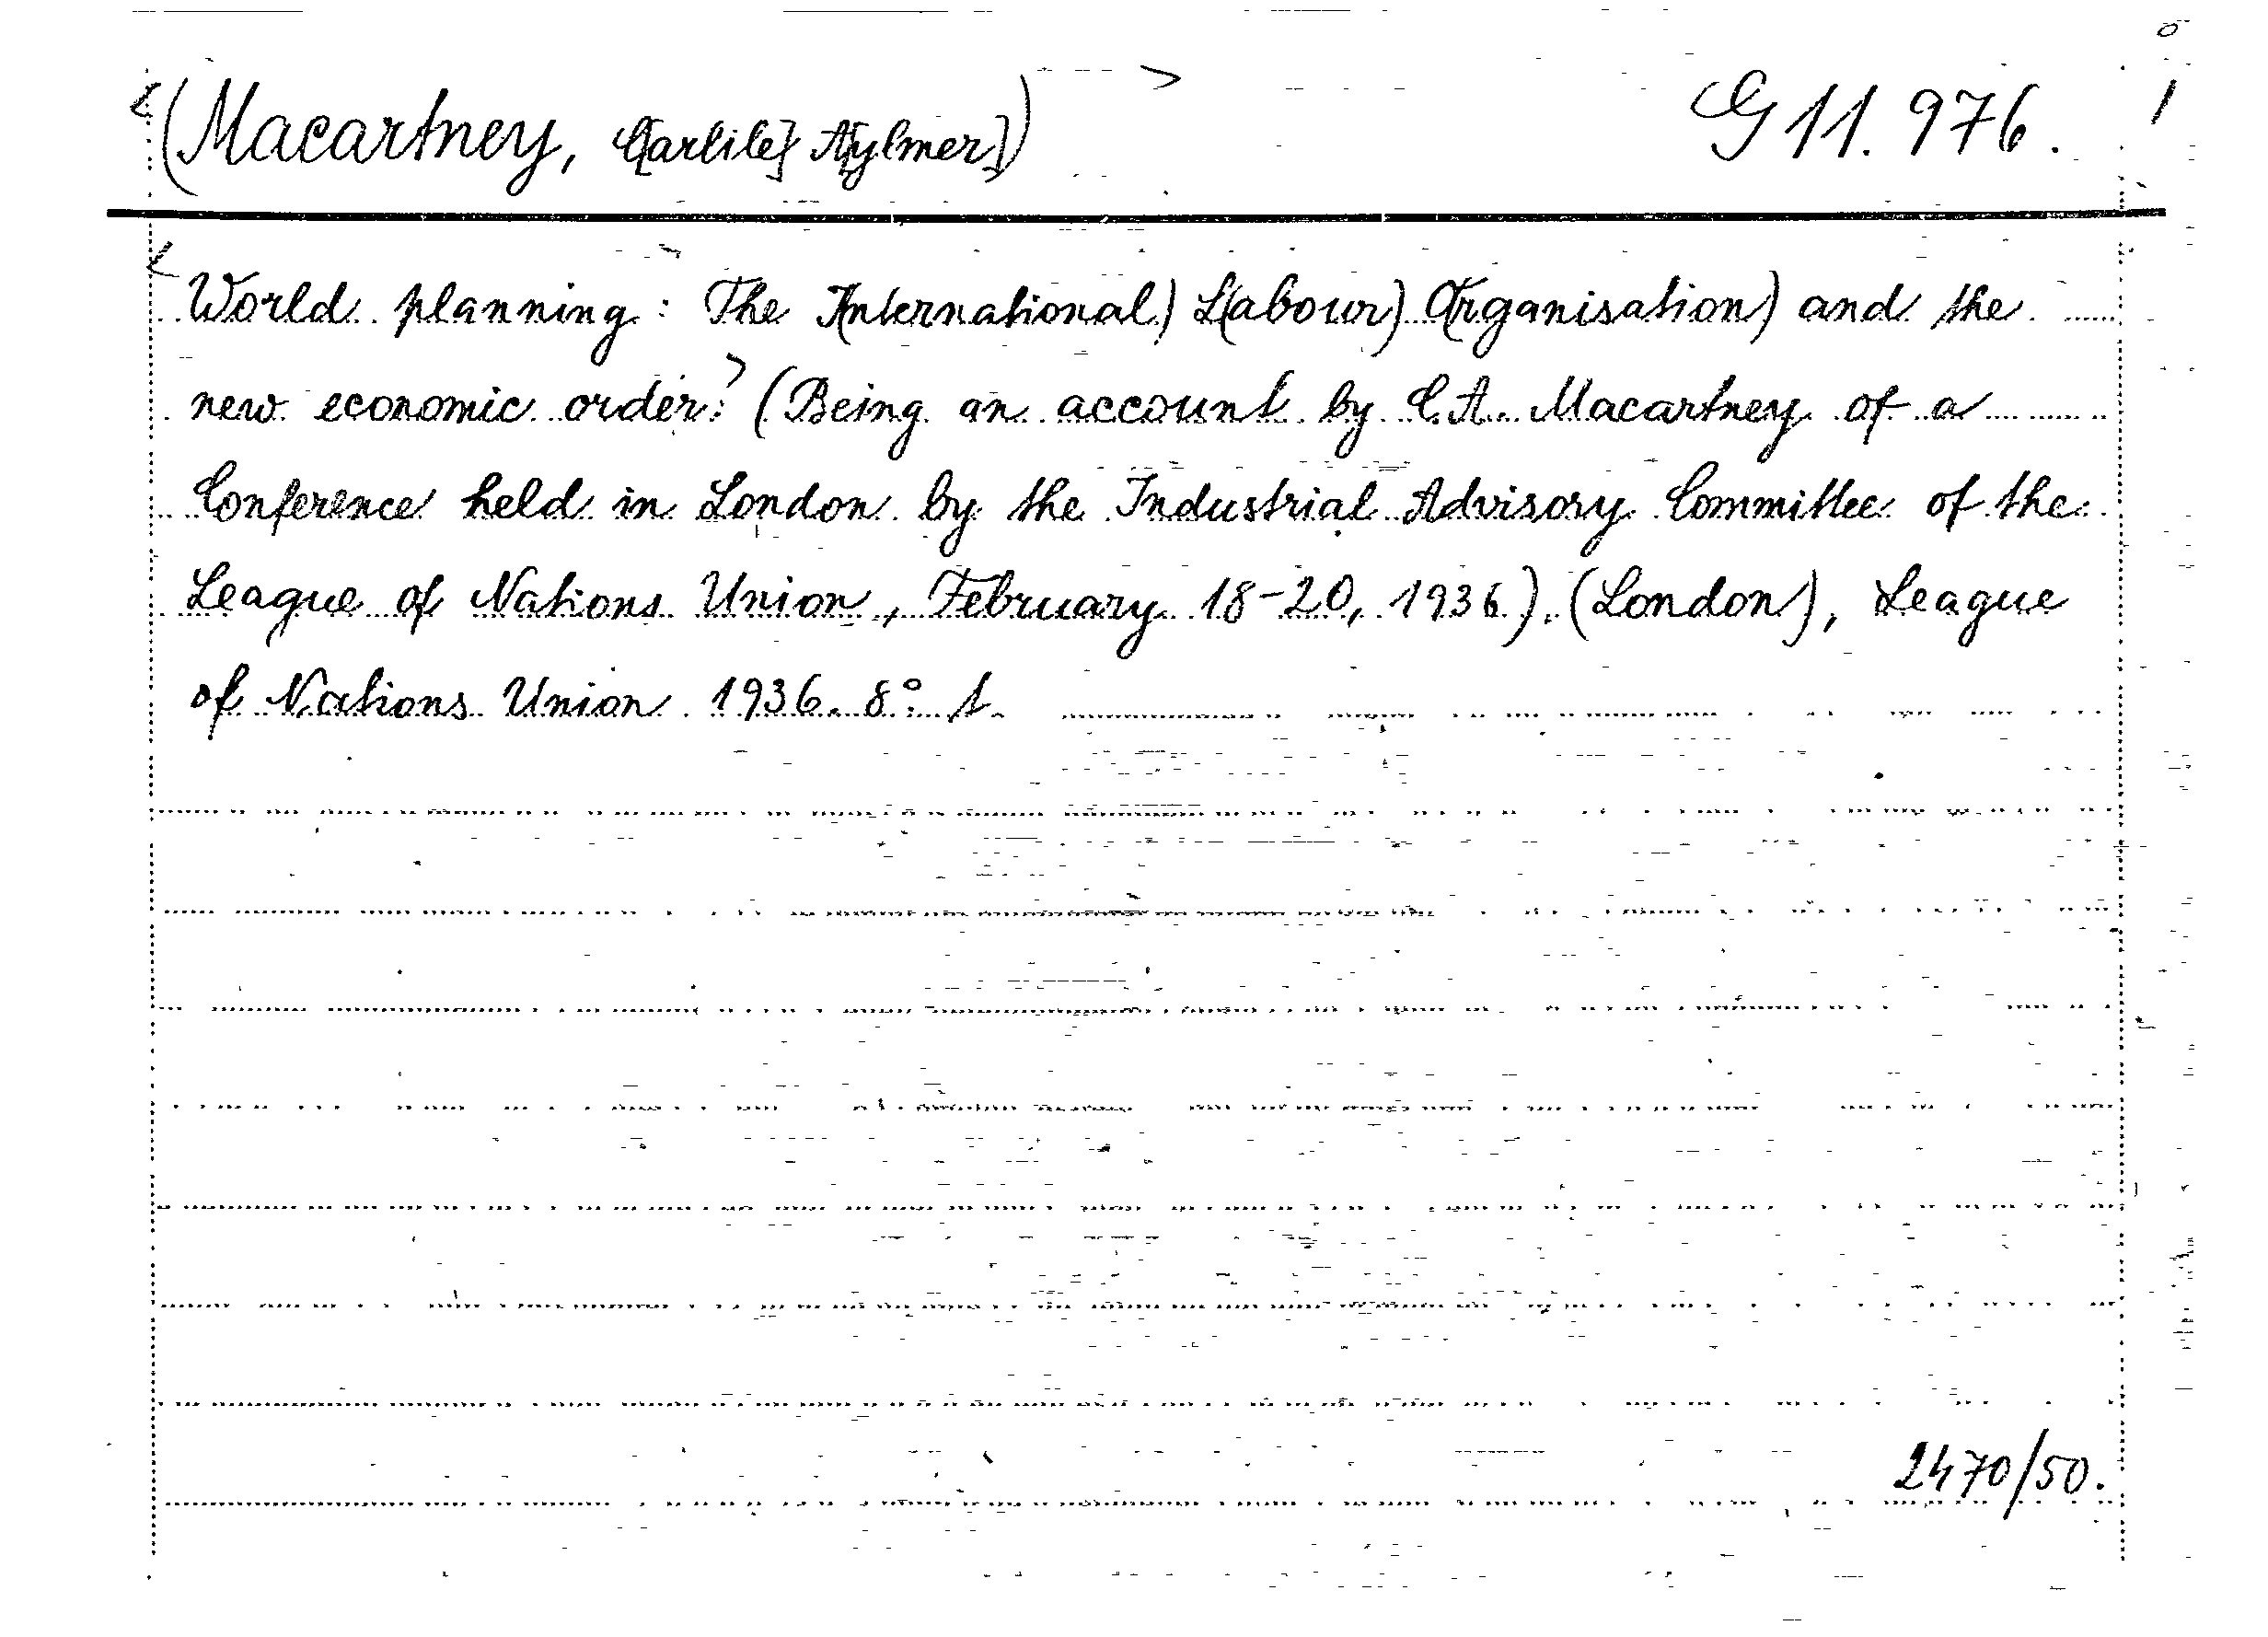 <(Macartney, C[arlile] A[ylmer])> G 11.976.
<World planning: The I(nternational) L(abour) O(rganisation) and the
new economic order.> (Being an account by C.A. Macartney of a
Conference held in London by the Industrial Advisory Committee of the
League of Nations Union, February 18-20, 1936). (London), League
of Nations Union 1936. 8° t.
2470/50.